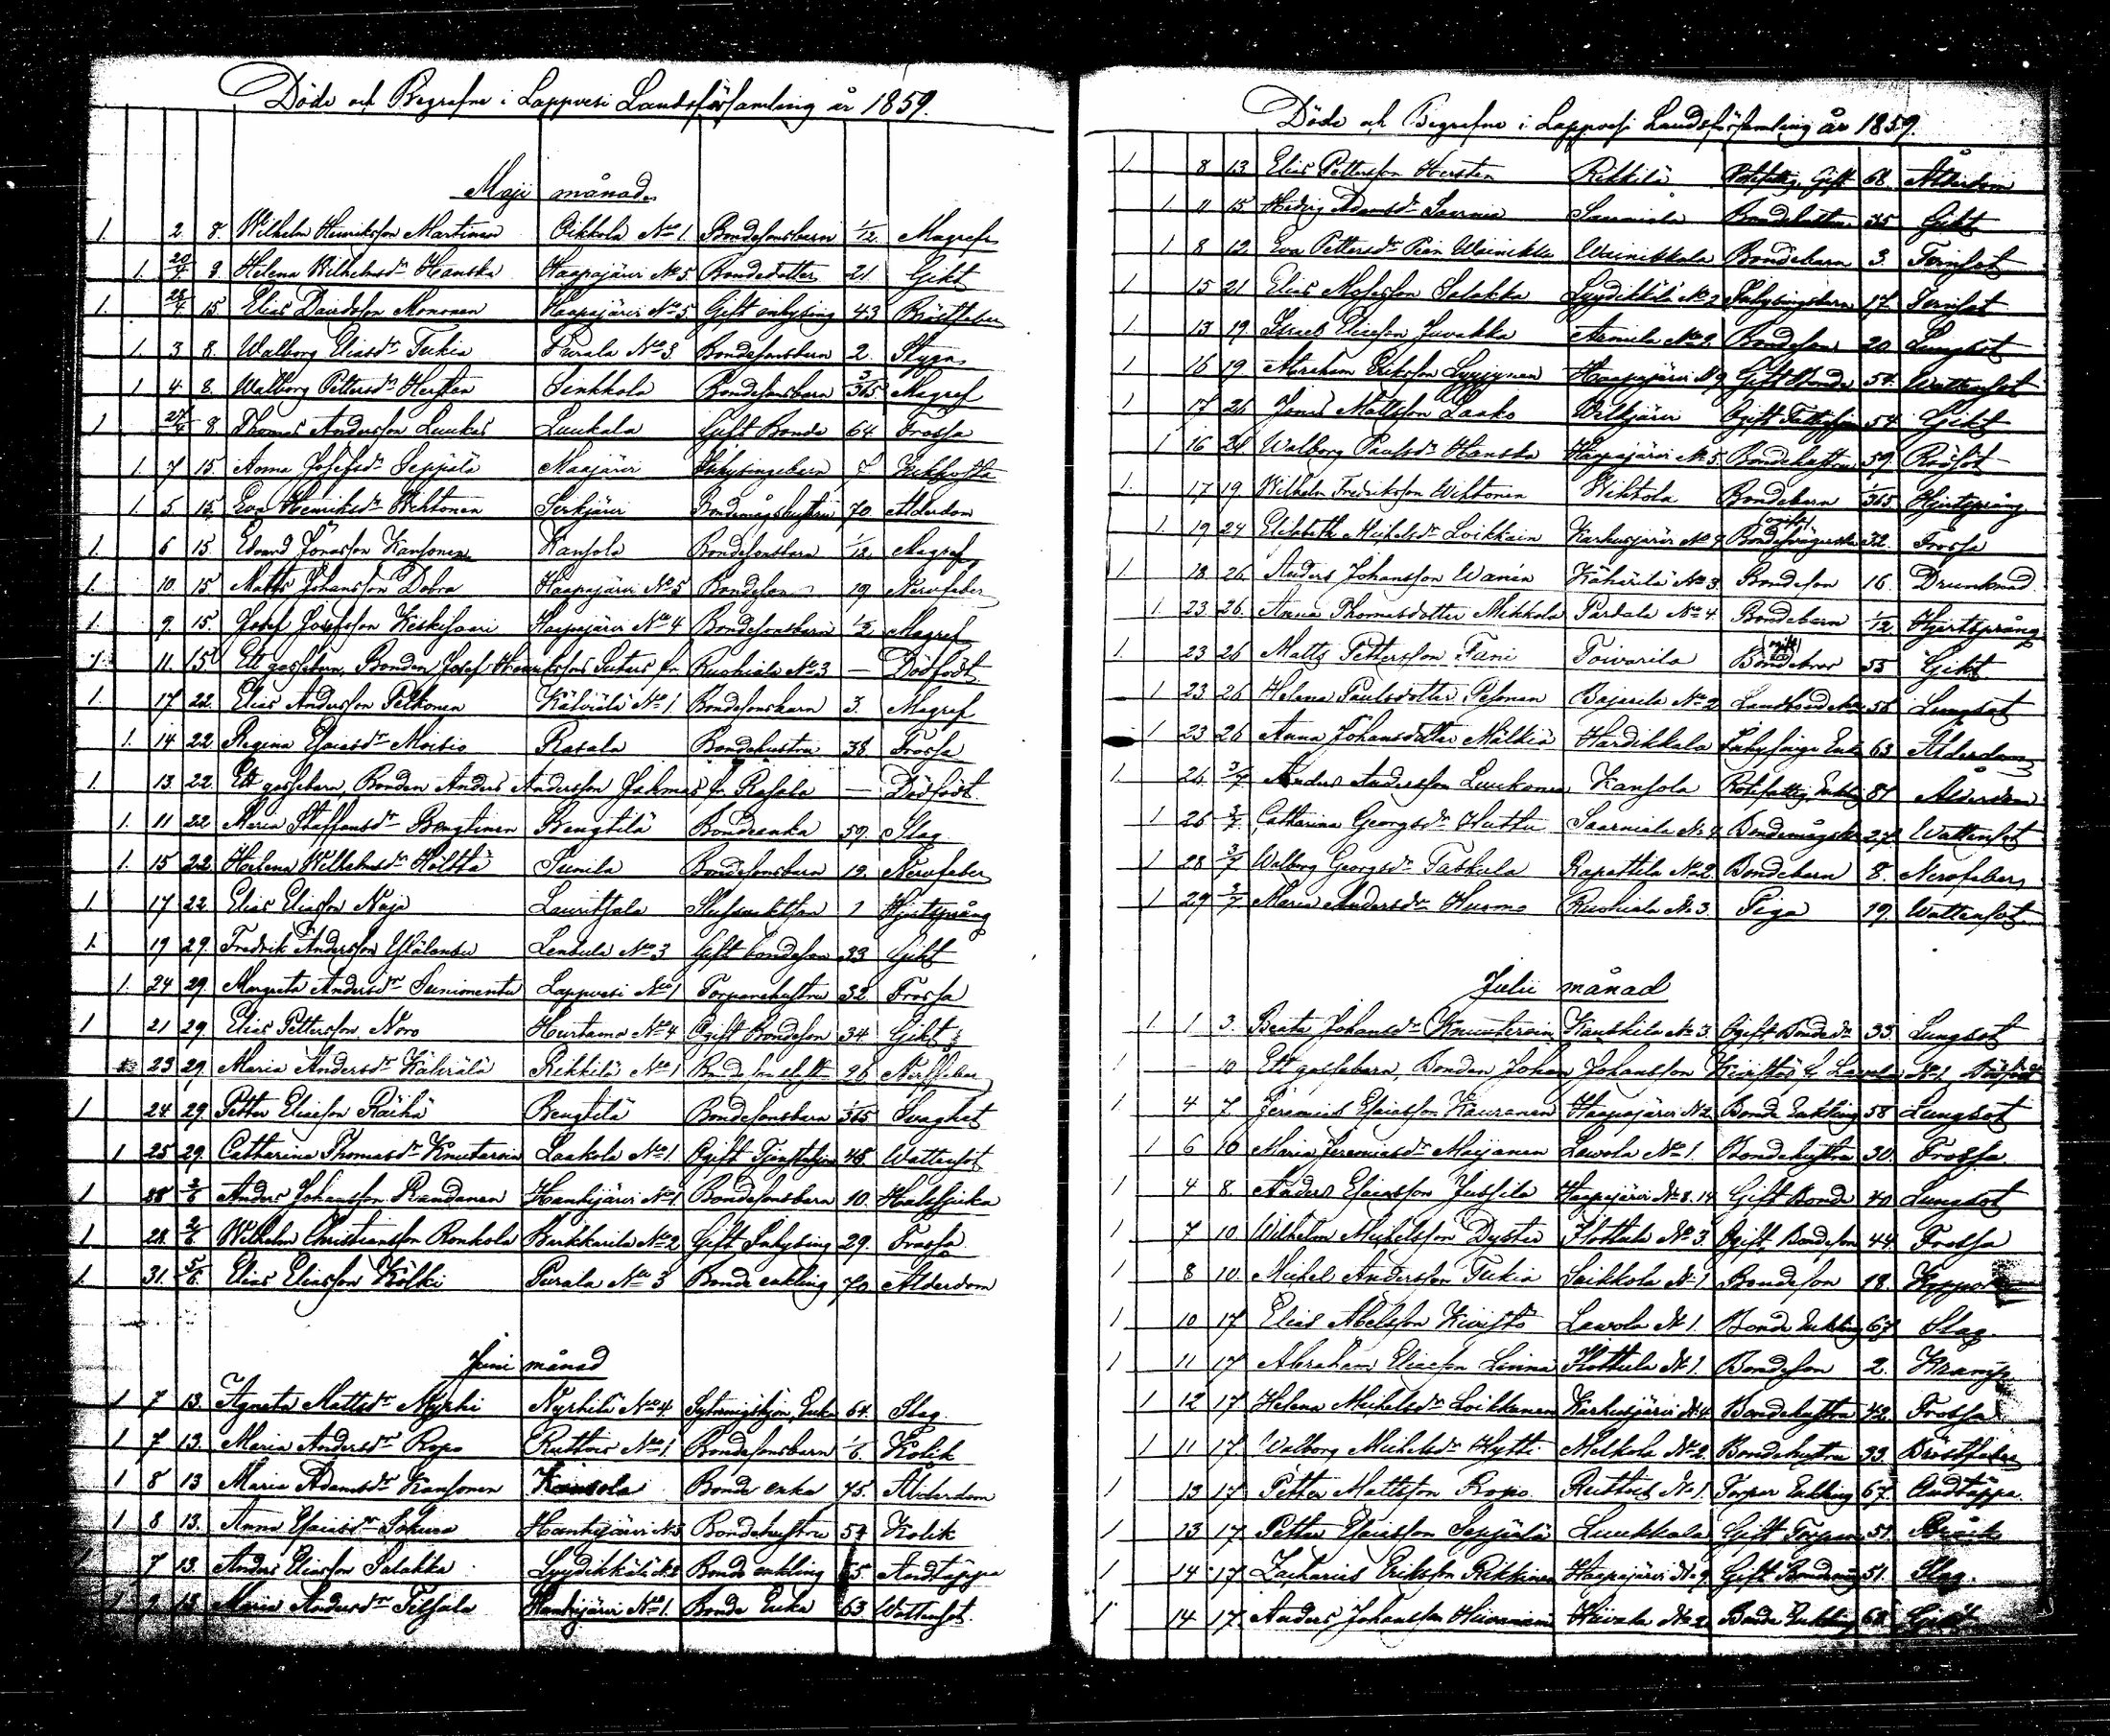 Döde och Begrafne i Lappvesi Landsförsamling år 1859.
Maji månad
1. 2. 8. Wilhelm Henriksson Martinen Oikkola No 1. Bondesonsbarn 1/12. Magref
1. 20/4 8. Helena Wilhelmsdr Hanska Haapajärvi No 5 Bondedotter 21. Gikt
1. 28/4 15. Elias Davidsson Mononen Haapajärvi No 5 Gift inhysing 43 Bröstfeber
1. 3 8. Walborg Eliasdr Tukia Purala No 3 Bondesonsbarn 2. Stygn
1 4 8. Walborg Pettersdr Hersten Sinkkola Bondesonsbarn 3/365 Magref
1 27/4 8. Thomas Andersson Luukas Luukala Gift Bonde 64 Frossa
1. 7 15. Anna Josefsdr Seppälä Maajärvi Inhysingebarn Kikhosta
1. 5. 15. Eva Henriksdr Wihtonen Serkjärvi Bondemågshustru 70. Ålderdom
1. 6 15. Edvard Jonasson Kansonen Kansola Bondesonsbarn 1/12. Magref
1. 10. 15. Matts Johansson Dobra Haapajärvi No 5 Bondeson 19 Nervfeber
1. 9. 15. Josef Josefsson Keskisaari Haapajärvi No 4 Bondesonsbarn 1/2 Magref
1 11. 15 Ett gossebarn, Bonden Josef Henrikssons Suters fr. Ruohiala No 3 — Dödfödt
1. 17 22. Elias Andersson Pelkonen Kälviälä No 1. Bondesonsbarn 3. Magref
1. 14 22. Regina Esaiasdr Moisio Rasala Bondehustru 38 Frossa
1. 13. 22. Ett gossebarn, Bonden Anders Andersson Jahmas fr Rasala — Dödfödt
1. 11 22 Maria Staffansdr Bengtinen Bengtilä Bondeenka 59. Slag
1. 15 22. Helena Wilhelmsdr Hölttä Sunila Bondesonsbarn 12. Nervfeber
1 17 22 Elias Eliasson Noja Lauritsala 1 Hjertsprång
1. 19 29. Fredrik Andersson Ylälentu Lentula No 3 Gift bondeson 33 Gikt
1. 24 29 Margreta Andersdr Sunimentu Lappvesi No 1 Torparehustru 32. Frossa
1 21 29. Elias Pettersson Noro Hurtama No 4 Ogift Bondeson 34. Gikt
23 29 Maria Andersdr Kähärilä Rikkilä No 1 26 Nervfeber
1 24 29. Petter Eliasson Räihä Bengtilä Bondesonsbarn 1/365 Svaghet
1 25 29. Catharina Thomasdr Knuutarein Laakola No 1. Ogift 48. Wattensot
1 28 2/6 Anders Johansson Randanen Hanhijärvi No 1. Bondesonsbarn 10. Halssjuka
1. 28. 2/6 Wilhelm Christiansson Ronkola Karkkarila No 2 Gift Inhysing 29. Frossa
1. 31. 5/6. Elias Eliasson Kölki Purala No 3 Bonde enkling 70. Ålderdom
Juni månad
1 7 13. Agneta Mattsdr Nyrhi Nyrhilä No 4. Enka 64. Slag.
1 7 13. Maria Andersdr Ropo Ruthois No 1. Bondesonsbarn 1/6. Kolik
1 8 13 Maria Adamsdr Kansonen Kansola Bonde enka 75. Ålderdom
1 8 13. Anna Esaiasdr Sokura Hanhijärvi No 3 Bondehustru 54 Kolik
7 13. Anders Eliasson Salakka Lyydikkälä No 2 Bonde enkling 65 Andtäppa
1 9 13 Maria Andersdr Hanhijärvi No 1. Bonde Enka 63 Wattensot.
Döde och Begrafne i Lappvesi Landsförsamling år 1859.
1. 8 13 Elias Pettersson Hersten Rikkilä Rotefattig, Gift 68. Ålderdom
1. 11 15 Hedvig Adamsdr Saarnia Saarniala 35 Gikt
1 8 12 Eva Pettersdr Wainikkala Bondebarn 3. Tärnsot
1. 15 21 Elias Mosesson Salakka Lyydikkälä No 2 Inhysingsbarn 17. Tärnsot
1. 13 19. Israel Eliasson Juvakka Armila No 2 Bondeson 20 Lungsot
1 16 19 Abraham Eriksson Lyyjynen Haapajärvi No 9 Gift Bonde 54. Wattensot
1 17 26 Jonas Mattsson Laako Wilkjärvi Ogift 54 Gikt
1 16 26 Walborg Paulsdr Hanska Haapajärvi No 5. Bondehustru 59. Rödsot
1. 17 19 Wilhelm Fredriksson Wihtonen Wihtola Bondebarn 1/365. Hjertsprång
1. 19 24 Elisabeth Michelsdr Loikkain Karhusjärvi No 4 32. Frossa
1. 18 26 Anders Johansson Wanén Kähärilä No 3 Bondeson 16. Drunknad.
1 23. 26. Anna Thomasdotter Mikkola Partala No 4. Bondebarn 1/12 Hjertsprång
1. 23 26 Matts Pettersson Tani Toivarila Bondebror 55 Gikt
1 23 26 Helena Paulsdotter Pesonen Bajarila No 2 56 Lungsot
1 23 26 Anna Johansdotter Mälkiä Hardikkala Inhysinge Enka 63 Ålderdom
1. 26. 3/7 Anders Andersson Luukonen Kansola Rotefattig, Enkling 81 Ålderdom
1 26 3/7 Catharina Georgsdr Huttu Saarniala No 4 27 Wattensot
1 28 3/7 Walborg Georgsdr Taskula Rapattila No 2. Bondebarn 8. Nervfeber
1 29 3/7 Maria Andersdr Huomo Ruohiala No 3. Piga 19. Wattensot
Julii månad
1. 1 3. Beata Johansdr Knuuterein Kauskila No 3. Ogift Bondedr 33. Lungsot
1 — 10 Ett gossebarn, Bonden Johan Johansson Kivistös fr Lavola No 1. Dödfödt
1. 4 7. Jeremias Esaiasson Kauranen Haapajärvi No 2. Bonde Enkling 58 Lungsot
1 6 10 Maria Jeremiasdr Maijanen Lavola No 1. Bondehustru 30. Frossa.
1 4 8. Anders Esaiasson Jussila Haapajärvi No 8. 14 Gift Bonde 40 Lungsot
1 7 10 Wilhelm Michelsson Dyster Hottula No 3. Ogift Bondeson 44. Frossa
1 8 10. Michel Andersson Tukia Saikkola No 1. Bondeson 18.
1 10 17 Elias Abelsson Kiviistö Lavola No 1. Bonde Enkling 67 Slag.
1 11 17 Abraham Eliasson Linna Hottula No 1. Bondeson 2. Kramp
1 12 17 Helena Michelsdr Loikkanen Karhusjärvi No 4. Bondehustru 42 Frossa
1 11 17 Walborg Michelsdr Hytti Melkola No 2. Bondehustru 33. Bröstfeber
1 13 17 Petter Mattsson Ropo Ruthois No 1. Torpar Enkling 67. Andtäppa.
1 13 17. Petter Esaiasson Seppälä Luukkala Gift Torpare 51.
1 14 17 Zacharias Eriksson Rikkinen Haapajärvi No 9. Gift 51. Slag.
1 14 17. Anders Johansson No 2. Bonde Enkling 68. Gikt